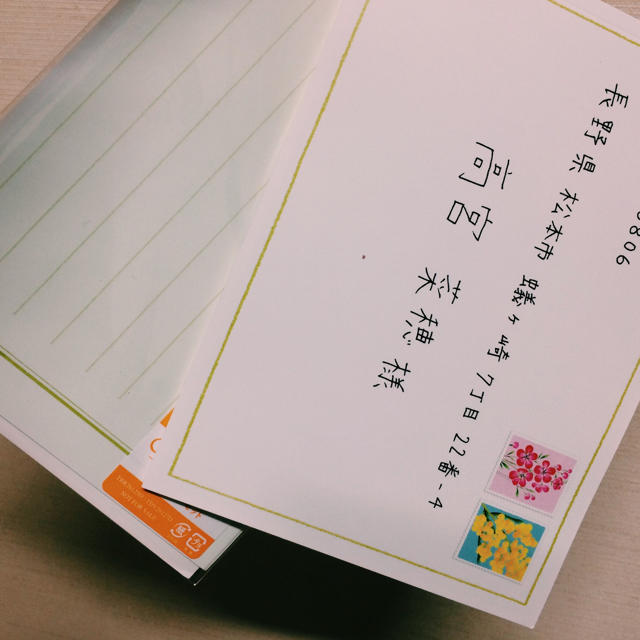 0806
長野県 松本市 蟻ヶ崎 7丁目 22番-4
高宮 菜穂 様